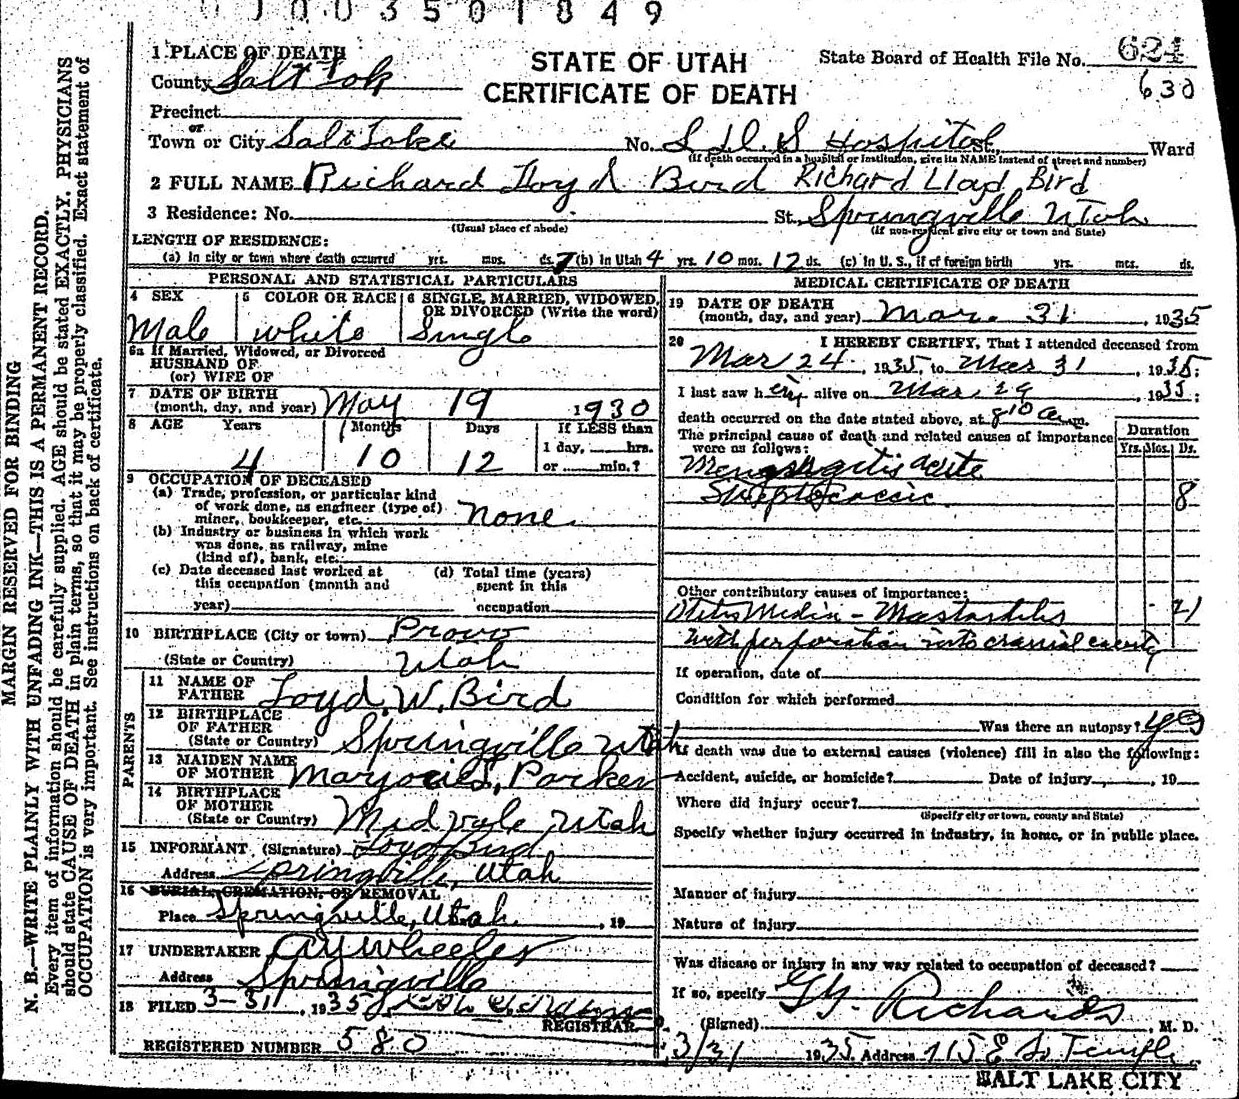 J 0 0 3 5 0 1 8 4 9
MARGIN RESERVED FOR BINDING
N. B.—WRITE PLAINLY WITH UNFADING INK—THIS IS A PERMANENT RECORD.
Every item of information should be carefully supplied. AGE should be stated EXACTLY. PHYSICIANS
should state CAUSE OF DEATH in plain terms, so that it may be properly classified. Exact statement of
OCCUPATION is very important. See instructions on back of certificate.
STATE OF UTAH
CERTIFICATE OF DEATH
State Board of Health File No. 624
630
1 PLACE OF DEATH
County Salt Lak
Precinct
or
Town or City Salt Lake No. L D. S Hospital St., Ward
(If death occurred in a hospital or institution, give its NAME instead of street and number)
2 FULL NAME Richard Lloyd Bird Richard Lloyd Bird
3 Residence: No. St. Springville Utah
(Usual place of abode) (If non-resident give city or town and State)
LENGTH OF RESIDENCE:
(a) In city or town where death occurred yrs. mos. ds. 7 (b) In Utah 4 yrs. 10 mos. 12 ds. (c) In U. S., if of foreign birth yrs. mos. ds.
PERSONAL AND STATISTICAL PARTICULARS
4 SEX 5 COLOR OR RACE 6 SINGLE, MARRIED, WIDOWED,
OR DIVORCED (Write the word)
Male white Single
6a If Married, Widowed, or Divorced
HUSBAND OF
(or) WIFE OF
7 DATE OF BIRTH
(month, day, and year) May 19 1930
8 AGE Years Months Days If LESS than
1 day, hrs.
or min.?
4 10 12
9 OCCUPATION OF DECEASED
(a) Trade, profession, or particular kind
of work done, as engineer (type of)
miner, boukkeeper, etc. none
(b) Industry or business in which work
was done, as railway, mine
(kind of), bank, etc.
(c) Date deceased last worked at
this occupation (month and
year)
(d) Total time (years)
spent in this
occupation
10 BIRTHPLACE (City or town) Provo
(State or Country) Utah
PARENTS
11 NAME OF
FATHER Loyd. W. Bird
12 BIRTHPLACE
OF FATHER
(State or Country) Springville Utah
13 MAIDEN NAME
OF MOTHER Marjorie Parker
14 BIRTHPLACE
OF MOTHER
(State or Country) Midvale Utah
15 INFORMANT (Signature) Loyd Bird
Address Springville, Utah
16 BURIAL, CREMATION, OR REMOVAL
Place Springville, Utah. , 19
17 UNDERTAKER A Y Wheeler
Address Springville
18 FILED 3-31, 1935
REGISTRAR.
REGISTERED NUMBER 580
MEDICAL CERTIFICATE OF DEATH
19 DATE OF DEATH
(month, day, and year) Mar. 31, 1935
20 I HEREBY CERTIFY, That I attended deceased from
Mar 24, 1935, to Mar 31, 1935;
I last saw h im alive on Mar 29, 1935;
death occurred on the date stated above, at 8 10 a. m.
The principal cause of death and related causes of importance
were as follows:
Duration
Yrs. Mos. Ds.
Meningitis acute
Streptococcic 8
Other contributory causes of importance:
Otitis Media - Mastoiditis 21
with perforation into cranial cavity
If operation, date of
Condition for which performed
Was there an autopsy? yes
If death was due to external causes (violence) fill in also the following:
Accident, suicide, or homicide? Date of injury , 19
Where did injury occur?
(Specify city or town, county and State)
Specify whether injury occurred in industry, in home, or in public place.
Manner of injury
Nature of injury
Was disease or injury in any way related to occupation of deceased?
If so, specify
(Signed) G. G. Richards, M. D.
3/31 1935 Address 115 E So Temple
SALT LAKE CITY